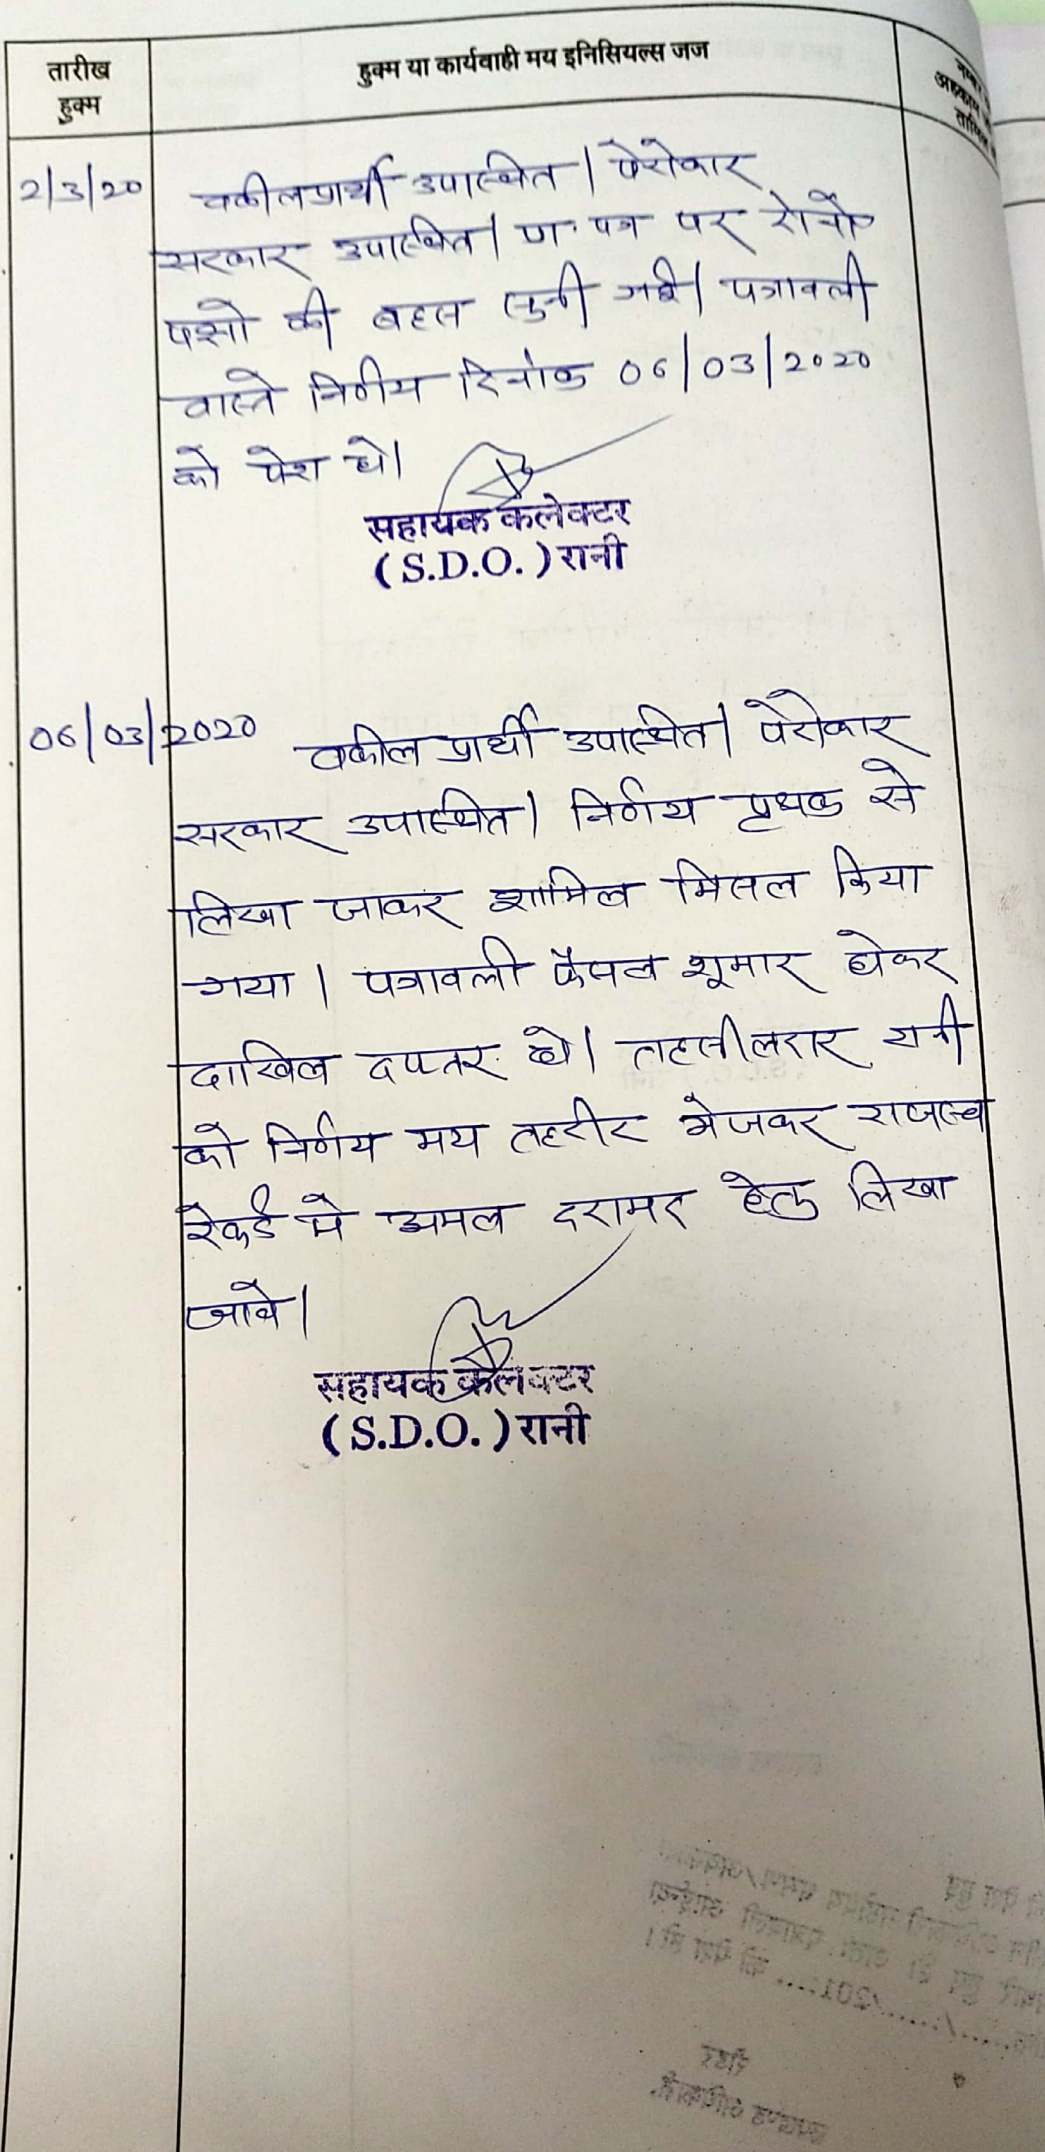 तारीख
हुक्म
हुक्म या कार्यवाही मय इनिसियल्स जज
अहकाम
2/3/20
वकील प्रार्थी उपास्थित। पेरोकार
सरकार उपास्थित। प्रा. पत्र पर दोनो
पक्षो की बहस सुनी गई। पत्रावली
वास्ते निर्णय दिनांक 06/03/2020
को पेश हो।
सहायक कलेक्टर
(S.D.O.) रानी
06/03/2020
वकील प्रार्थी उपास्थित। पेरोकार
सरकार उपास्थित। निर्णय पृथक से
लिखा जाकर शामिल मिसल किया
गया। पत्रावली फैसल शूमार होकर
दाखिल दफ्तर हो। तहसीलदार रानी
को निर्णय मय तहरीर भेजकर राजस्व
रेकर्ड मे अमल दरामद हेतु लिखा
जावे।
सहायक कलेक्टर
(S.D.O.) रानी